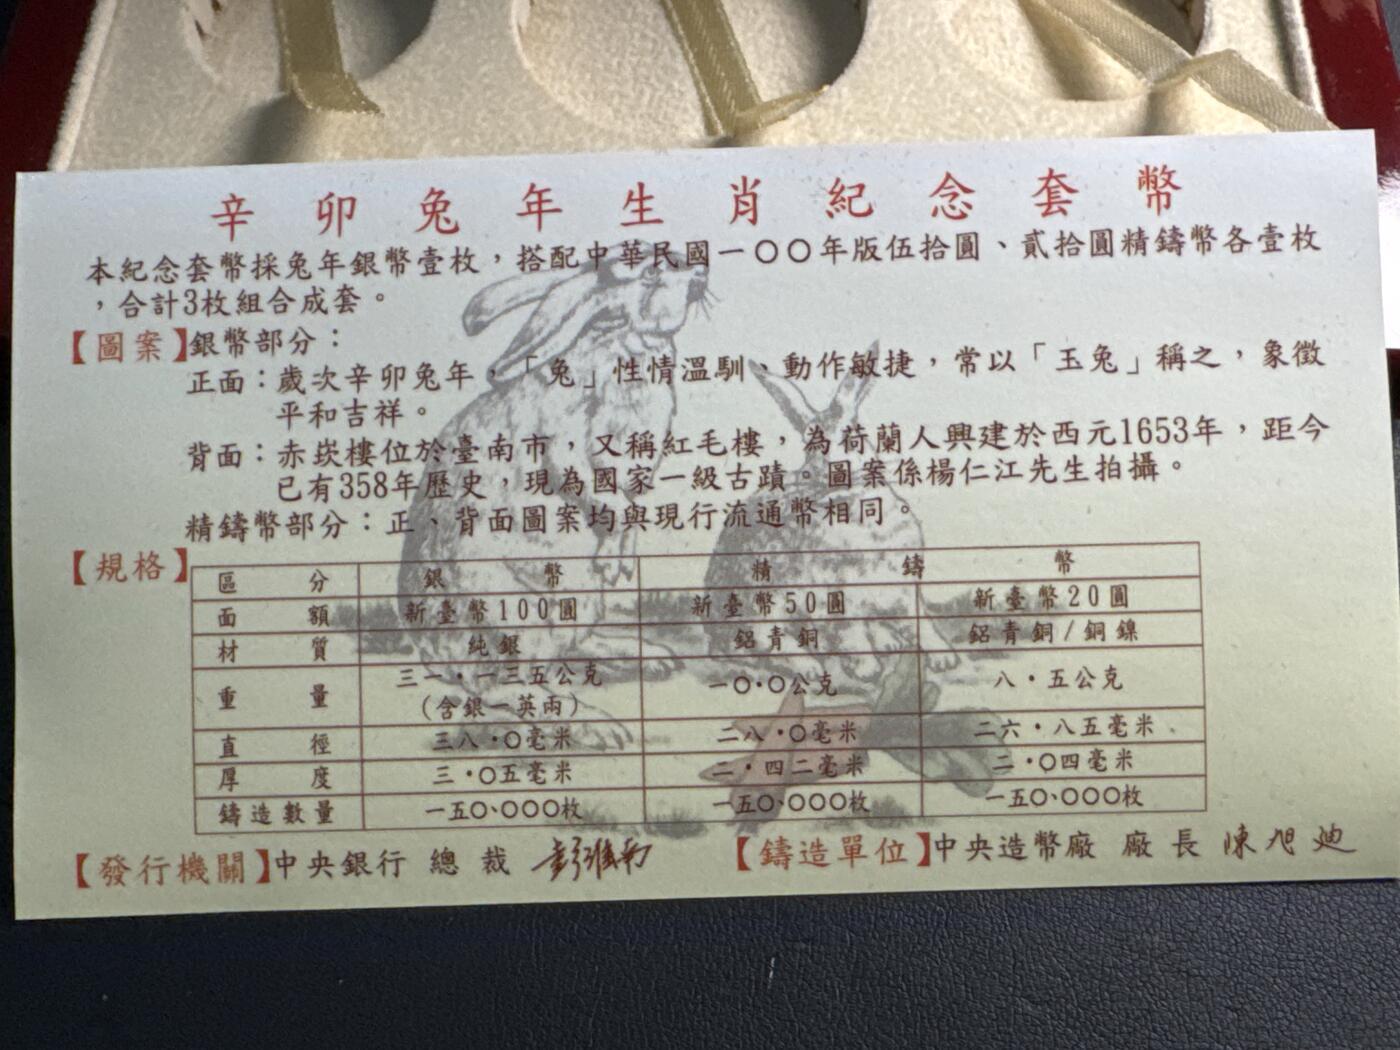 辛卯兔年生肖紀念套幣
本紀念套幣採兔年銀幣壹枚，搭配中華民國一〇〇年版伍拾圓、貳拾圓精鑄幣各壹枚
，合計3枚組合成套。
【圖案】銀幣部分：
正面：歲次辛卯兔年，「兔」性情溫馴、動作敏捷，常以「玉兔」稱之，象徵
平和吉祥。
背面：赤崁樓位於臺南市，又稱紅毛樓，為荷蘭人興建於西元1653年，距今
已有358年歷史，現為國家一級古蹟。圖案係楊仁江先生拍攝。
精鑄幣部分：正、背面圖案均與現行流通幣相同。
【規格】
區分 銀幣 精鑄幣
面額 新臺幣100圓 新臺幣50圓 新臺幣20圓
材質 純銀 鋁青銅 鋁青銅/銅鎳
重量 三一·一三五公克 一〇·〇公克 八·五公克
(含銀一英兩)
直徑 三八·〇毫米 二八·〇毫米 二六·八五毫米
厚度 三·〇五毫米 二·四二毫米 二·〇四毫米
鑄造數量 一五〇、〇〇〇枚 一五〇、〇〇〇枚 一五〇、〇〇〇枚
【發行機關】中央銀行 總裁 彭淮南 【鑄造單位】中央造幣廠 廠長 陳旭迪